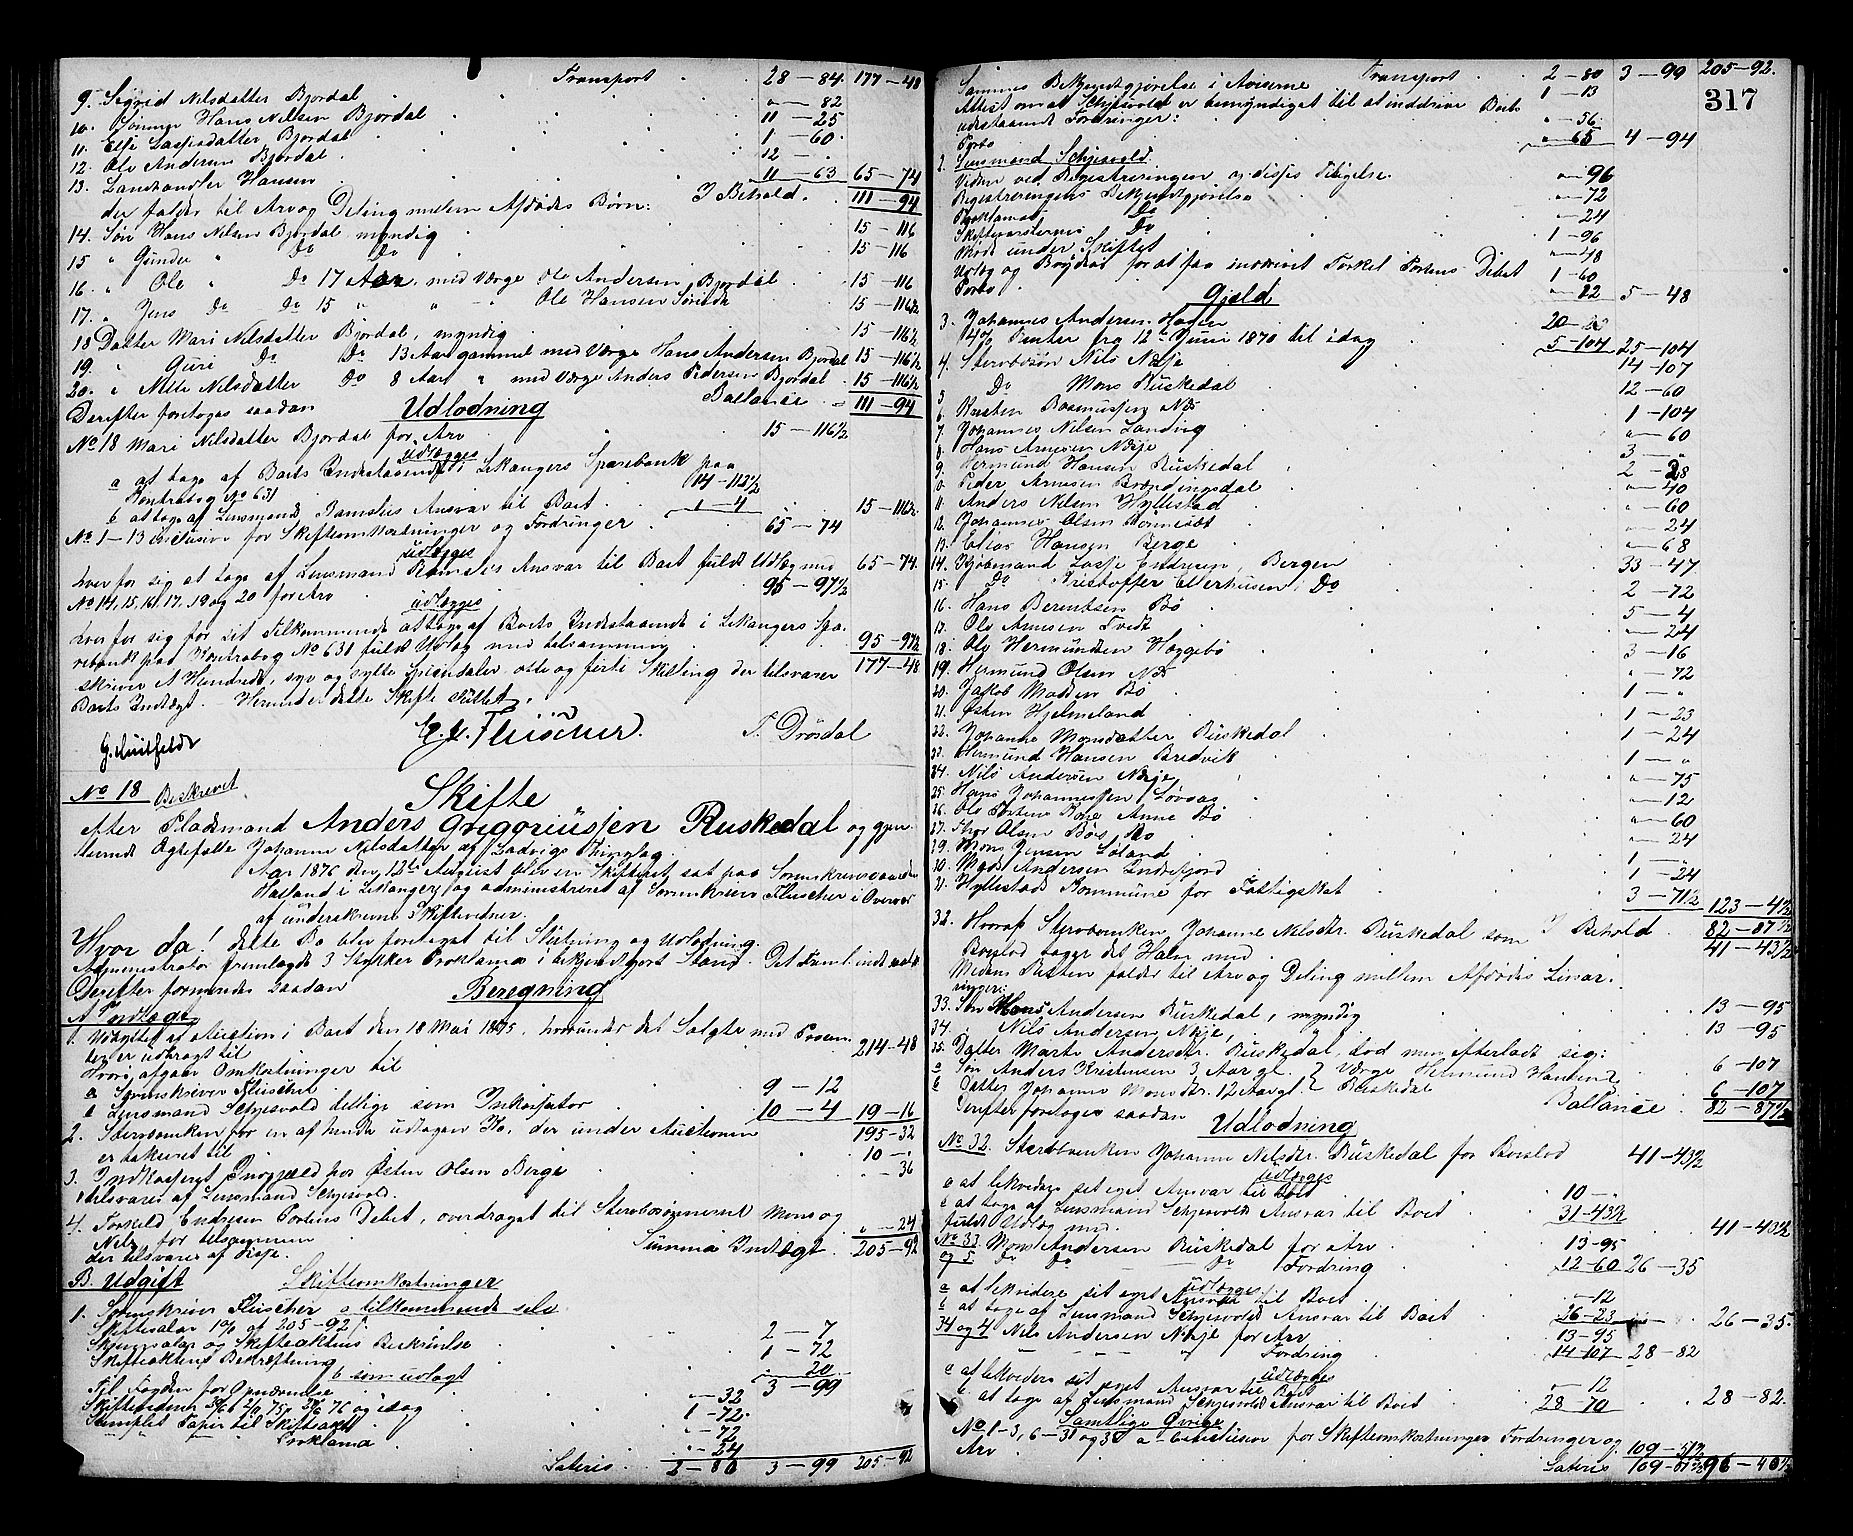 Transport 28-84. 177-48
9. Sigrid Nilsdatter Bjordal " - 82
10. Hans Nilsen Bjordal 11 - 25
11. Else Lassesdatter Bjordal 1 - 60
12. Ole Andersen Bjordal 12 - "
13. Landhandler Hansen 11 - 63 65-74
I Behold. 111-94
der falder til Arv og Deling mellem Afdødes Børn:
14. Søn Hans Nilsen Bjordal myndig 15-116
15 " Gunder " Do Do 15-116
16. " Ole " Do 17 Aar, med Værge Ole Andersen Bjordal 15-116
17. " Jens Do Do 15 " " - " Ole Hansen 15-116½
18 Datter Mari Nilsdatter Bjordal, myndig 15-116½
19. " Guri Do Do 13 Aar gammel med Værge Hans Andersen Bjordal 15-116½
20. " Nilsdatter Do 8 Aar " med Værge Anders Pedersen Bjordal 15-116½
Ballance 111-94
Derefter foretoges saadan Udlodning
No 18 Mari Nilsdatter Bjordal for Arv 15-116½
udlægges
a at tage af Boets Indestaaende i Lekangers Sparebank paa
Kontrabog No 631 14-112½
b at tage af Lensmand Ramsles Ansvar til Boet 1-4 15-116½
No 1-13 inclusive for Skifteomkostninger og Fordringer 65-74
udlægges
hver for sig at tage af Lensmand Ramsles Ansvar til Boet fuldt Udlæg med 65-74.
No 14, 15, 16, 17, 19 og 20 for Arv 95-97½
udlægges
hver for sig for sit Tilkommende at tage af Boets Indestaaende i Lekangers Spa-
rebank paa Kontrabog No 631 fuldt Udlæg med tilsammen 95-97½
skriver Et Hundrede, syv og sytti Speciedaler, otte og førti Skilling der tilsvarer 177-48
Boets Indtægt. - Hermed er dette Skifte sluttet.
G. Huitfeldt Fleischer T. Drösdal
No 18 Beskrevet
Skifte
efter Pladsmand Anders Grigoriussen Ruskedal og gjen-
levende Ægtefælle Johanne Nilsdatter af Ladvigs Thinglag.
Aar 1876 den 12te August blev en Skifteret sat paa Sorenskrivergaarden
i Lekanger, og administreret af Sorenskriver Fleischer i Overvær
af underskrevne Skiftevidner.
Hvor da! dette Bo blev foretaget til Slutning og Udlodning.
Administrator fremlagde 3 Stykker Proklama i bekjendtgjort Stand.
Derefter formeredes saadan Beregning
A. Indtægt
1. Udbyttet af Auction i Boet den 18 Mai 1875, herunder det Solgte med Procen-
ter er udbragt til 214-48
Hvori afgaar Omkostninger til
a Sorenskriver Fleischer 9 - 12
b Lensmand Schjesvold tillige som Inkassator 10 - 4 19-16
195-32
2. Sterboenken for en af hende udtagen Ko, der under Auctionen
er takseret til 10 - "
3. Inkasseret Gjæld hos Østen Olsen Berge " - 36
tilsvares af Lensmand Schjesvold.
4. Torkeld Endresen Portens Debet, overdraget til Sterbosønnerne Mons og
Nels for tilsammen " - 24
der tilsvares af disse. Summa Indtægt 205-92
B. Udgift Skifteomkostninger
1. Sorenskriver Fleischer a tilkommende selv
Skiftesalær 1% af 205-92 2 - 7
og Skifteaktens Beskrivelse 1 - 72
Skifteaktens Bekræftning " 20
3 - 99
b som udlagt
Til Fogden for Opnævnelse " - 32
Skiftevidner og idag 1 - 72
Stemplet Papir til Skifteakt " - 72
Proklama " - 24
Lateris 2-80 3-99 205-92
317
Transport 2-80 3-99 205-92.
Sammes Bekjendtgjørelse i Aviserne 1 - 13
Attest om at Schjesvold er bemyndiget til at inddrive Boets
udestaaende Fordringer: " - 56
Porto " 65 4-94
2. Lensmand Schjesvold.
Viden ved Registreringen og disses Tilsigelse " 96
Registreringens Bekjendtgjørelse " - 72
Proklamaets Do " - 24
Skiftevarslernes Do 1 - 96
Møde under Skiftet " - 48
Udlæg og for at faa inddrevet Torkel Portens Debet 1 - 60
Porto " - 12 5-48
Gjæld
3. Johannes Andersen 20 - 20
4% Renter fra 12te Juni 1870 til idag 5-104 25-104
4. Sterbosøn Nils Næje 14-107
5 Do Mons Ruskedal 12-60
6. Karsten Rasmussen Næs 1-104
7. Johannes Nilsen Landing " - 60
8. Hans Arnesen Næje 3 - "
9. Hermund Hansen Ruskedal 2 - 28
10. Peder Arnesen Brændingsdal " - 40
11. Anders Nilsen Hyllestad " - 60
12. Johannes Olsen " - 24
13. Elias Hansen Berge " - 68
14. Kjøbmand Lasse Endresen, Bergen 33-47
15. Do Kristoffer Ellerhusen, Do 2 - 72
16. Hans Berentsen Bø 5 - 4
17. Ole Arnesen Tvedt " - 24
18. Ole Hermundsen Haggebø 3 - 16
19. Hermund Olsen Næs " - 72
20. Jakob Madsen Bø 1 - "
21. Østen Hjelmeland 1 - 23
22. Johanne Monsdatter Ruskedal 1 - 24
23. Hermund Hansen Bredvik 1 - "
24. Nils Andersen Næje " - 75
25. Hans Johannessen Løvaas " - 12
26. Ole Portens Kone Anne Bø " - 60
27. Thor Olsen Bøes Bo " - 24
29. Mons Jensen Løland 1 - "
30. Mads Andersen Indrefjord 1 - 24
31. Hyllestads Kommune for Fattigskat 3-71½ 123-4½
I Behold 82-87½
32. Hvoraf Sterboenken Johanne Nilsdtr. Ruskedal som
Boeslod tager det Halve med 41-43½
Medens Resten falder til Arv og Deling mellem Afdødes Livsar-
vinger:
33. Søn Mons Andersen Ruskedal, myndig 13-95
34. " Nils Andersen Næje, " 13-95
35. Datter Marte Andersdtr. Ruskedal, død men efterladt sig:
a Søn Anders Kristensen 3 Aar gl. } Værge Hermund Hansen 6-107
b Datter Johanne Monsdtr. 12 Aar gl. } Ruskedal 6-107
Ballance 82-87½
Derefter foretoges saadan Udlodning
No 32. Sterboenken Johanne Nilsdtr. Ruskedal for Boeslod 41-43½
udlægges
a at likvidere sit eget Ansvar til Boet 10 - "
b at tage af Lensmand Schjesvolds Ansvar til Boet 31-43½
fuldt Udlæg med 41-43½
No 33 Mons Andersen Ruskedal for Arv 13-95
og 5 Do Do - Do Fordring 12-60 26-35
udlægges
a at likvidere sit eget Ansvar til Boet " - 12
b at tage af Lensmand Schjesvolds Ansvar til Boet 26-23 26-35.
34 og 4 Nils Andersen Næje for Arv 13-95
- - " Fordring 14-107 28-82
udlægges
a at likvidere sit eget Ansvar til Boet " - 12
b at tage af Lensmand Schjesvolds Ansvar til Boet 28-70 28-82.
Samtlige Øvrige
No 1-3, 6-31 og 35 a-b inclusive for Skifteomkostninger Fordringer og
Arv 109-51½
Lateris 109-51½ 96-40½